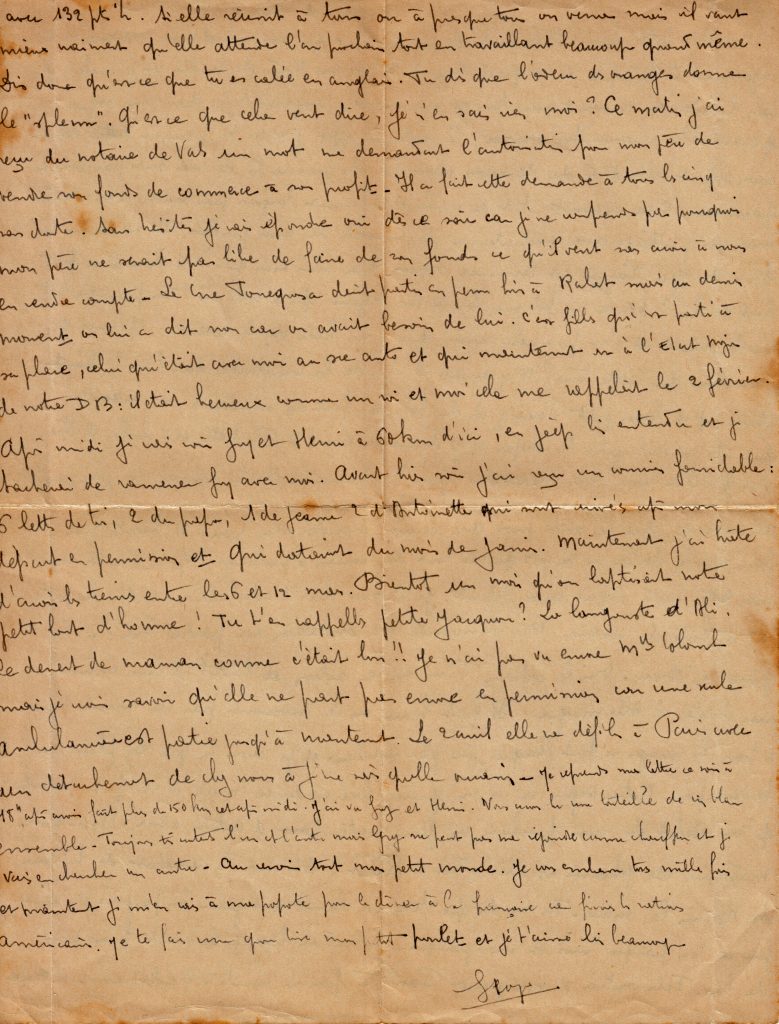 avec 132 pts ½. Si elle réussit à tous ou à presque tous on verra mais il vaut
mieux vraiment qu'elle attende l'an prochain tout en travaillant beaucoup quand même.
Dis donc qu'est ce que tu es calée en anglais. Tu dis que l'odeur des oranges donne
le "spleen". Qu'est ce que cela veut dire, je n'en sais rien moi? Ce matin j'ai
reçu du notaire de Vals un mot me demandant l'autorisation pour mon père de
vendre son fonds de commerce à son profit - Il a fait cette demande à tous les cinq
sans doute. Sans hésiter je vais répondre oui dès ce soir car je ne comprends pas pourquoi
mon père ne serait pas libre de faire de son fonds ce qu'il veut sans avoir à nous
en rendre compte - Le Cne devait partir en perm hier à Rabat mais au dernier
moment on lui a dit non car on avait besoin de lui. C'est qui est parti à
sa place, celui qui était avec moi au sce auto et qui maintenant est à l'Etat Major
de notre DB: il était heureux comme un roi et moi cela me rappelait le 2 février.
Après midi je vais voir Guy et Henri à 60 km d'ici, en jeep bien entendu et je
tacherai de ramener Guy avec moi. Avant hier soir j'ai reçu un courrier formidable:
6 lettres de toi, 2 du 1 de Jeanne 2 d'Antoinette qui sont arrivés après mon
départ en permission et qui dataient du mois de Janvier. Maintenant j'ai hâte
d'avoir les tiennes entre les 6 et 12 mars. Bientôt un mois qu'on baptisait notre
petit bout d'homme! Tu t'en rappelles petite Jacquou? La langouste d'Ali.
Le dessert de maman comme c'était bon!! Je n'ai pas vu encore Mlle Colomb
mais je crois savoir qu'elle ne part pas encore en permission car une seule
ambulancière est partie jusqu'à maintenant. Le 2 avril elle va défiler à Paris avec
un détachement de chez nous à je ne sais quelle occasion - Je reprends ma lettre ce soir à
18h après avoir fait plus de 150 km cet après midi. J'ai vu Guy et Henri. Nous avons bu une bouteille de vin blanc
ensemble - Toujours l'un et l'autre mais Guy ne peut pas me rejoindre comme chauffeur et je
vais en chercher un autre - Au revoir tout mon petit monde. Je vous embrasse tous mille fois
et maintenant je m'en vais à ma popote pour le dîner à la française car finies les rations
américaines. Je te fais une grosse bise mon ptit poulet et je t'aime bien beaucoup